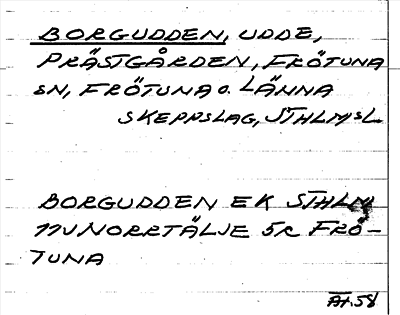 BORGUDDEN, UDDE,
PRÄSTGÅRDEN, FRÖTUNA
SN, FRÖTUNA O. LÄNNA
SKEPPSLAG, STHLMSL
BORGUDDEN EK STHLM
11UNORRTÄLJE 5R FRÖ-
TUNA
58